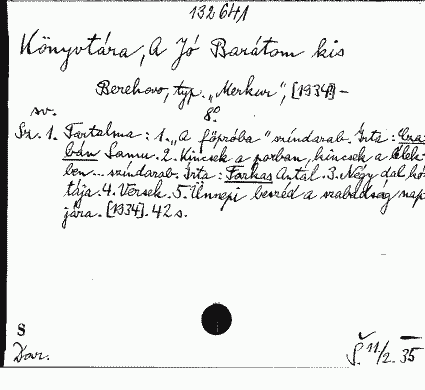 132641
Könyvtára, A Jó Barátom kis
Berehovo, typ. „Merkur", [1934] –
8°.
sv.
Sz. 1. Tartalma: 1. „A főpróba" színdarab. Írta: Cza-
bán Samu. 2. Kincsek a porban, kincsek a lélek-
ben... színdarab. Írta: Farkas Antal. 3. Négy dal kó-
tája. 4. Versek. 5. Ünnepi beszéd a szabadság nap-
jára. [1934]. 42 s.
S
Dar.
Š. 11/2. 35